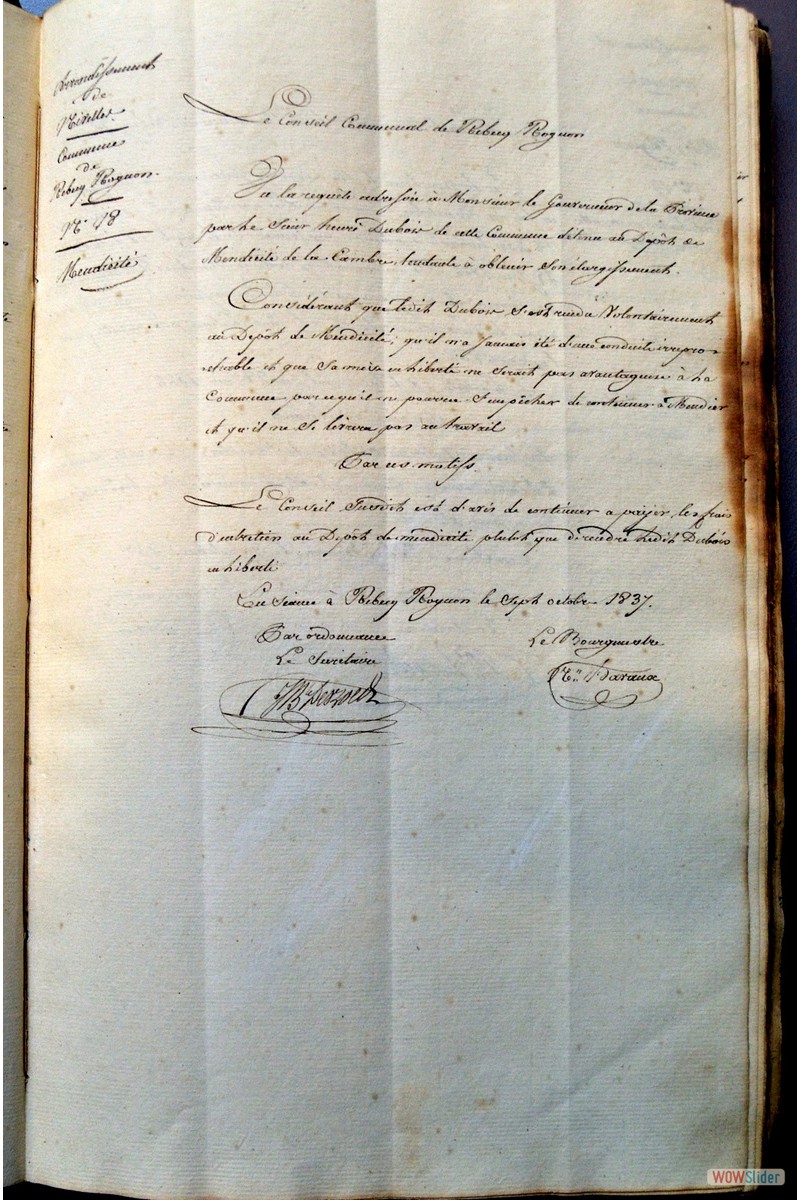 Arrondissement
de
Nivelles
Commune
de
Rebecq Rognon
N° 18
Mendicité
Le Conseil Communal de Rebecq Rognon
Vu la requête adressée à Monsieur le Gouverneur de la Province
par le Sieur henri Dubois de cette Commune détenu au Dépôt de
Mendicité de la Cambre, tendante à obtenir son élargissement.
Considérant que ledit Dubois s'est rendu Volontairement
au Dépôt de Mendicité, qu'il n'a Jamais été d'une conduite irrépro-
chable et que sa mise en liberté ne serait pas avantageuse à la
Commune parce qu'il ne pourra s'empêcher de continuer à Mendier
et qu'il ne se livrera pas au travail
Par ces motifs.
Le Conseil Susdit est d'avis de continuer a payer les frais
d'entretien au Dépôt de mendicité plutot que de rendre ledit Dubois
en liberté
En Séance à Rebecq Rognon le Sept octobre 1837.
Par ordonnance
Le Bourgmestre
Le Secrétaire
WOWSlider